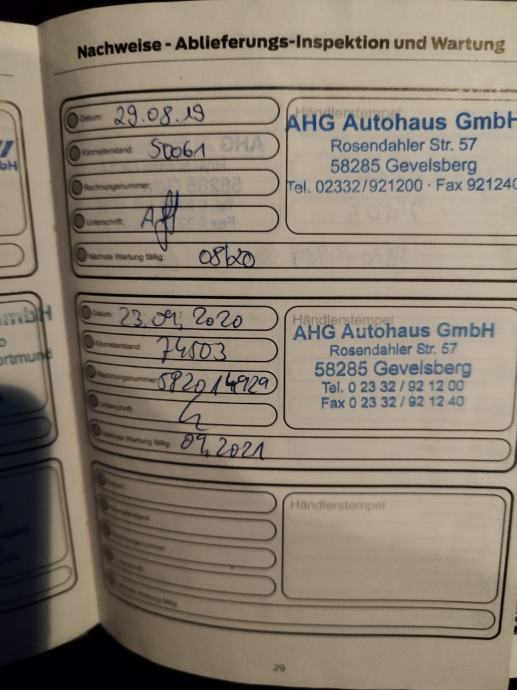 Nachweise - Ablieferungs-Inspektion und Wartung
Datum: 29.08.19
Kilometerstand: 50061
Rechnungsnummer:
Unterschrift:
Nächste Wartung fällig: 08/20
Händlerstempel
AHG Autohaus GmbH
Rosendahler Str. 57
58285 Gevelsberg
Tel. 02332/921200 · Fax 921240
Datum: 23.09.2020
Kilometerstand: 74503
Rechnungsnummer:
Unterschrift
Nächste Wartung fällig: 09.2021
Händlerstempel
AHG Autohaus GmbH
Rosendahler Str. 57
58285 Gevelsberg
Tel. 0 23 32 / 92 12 00
Fax 0 23 32 / 92 12 40
Datum
Händlerstempel
29